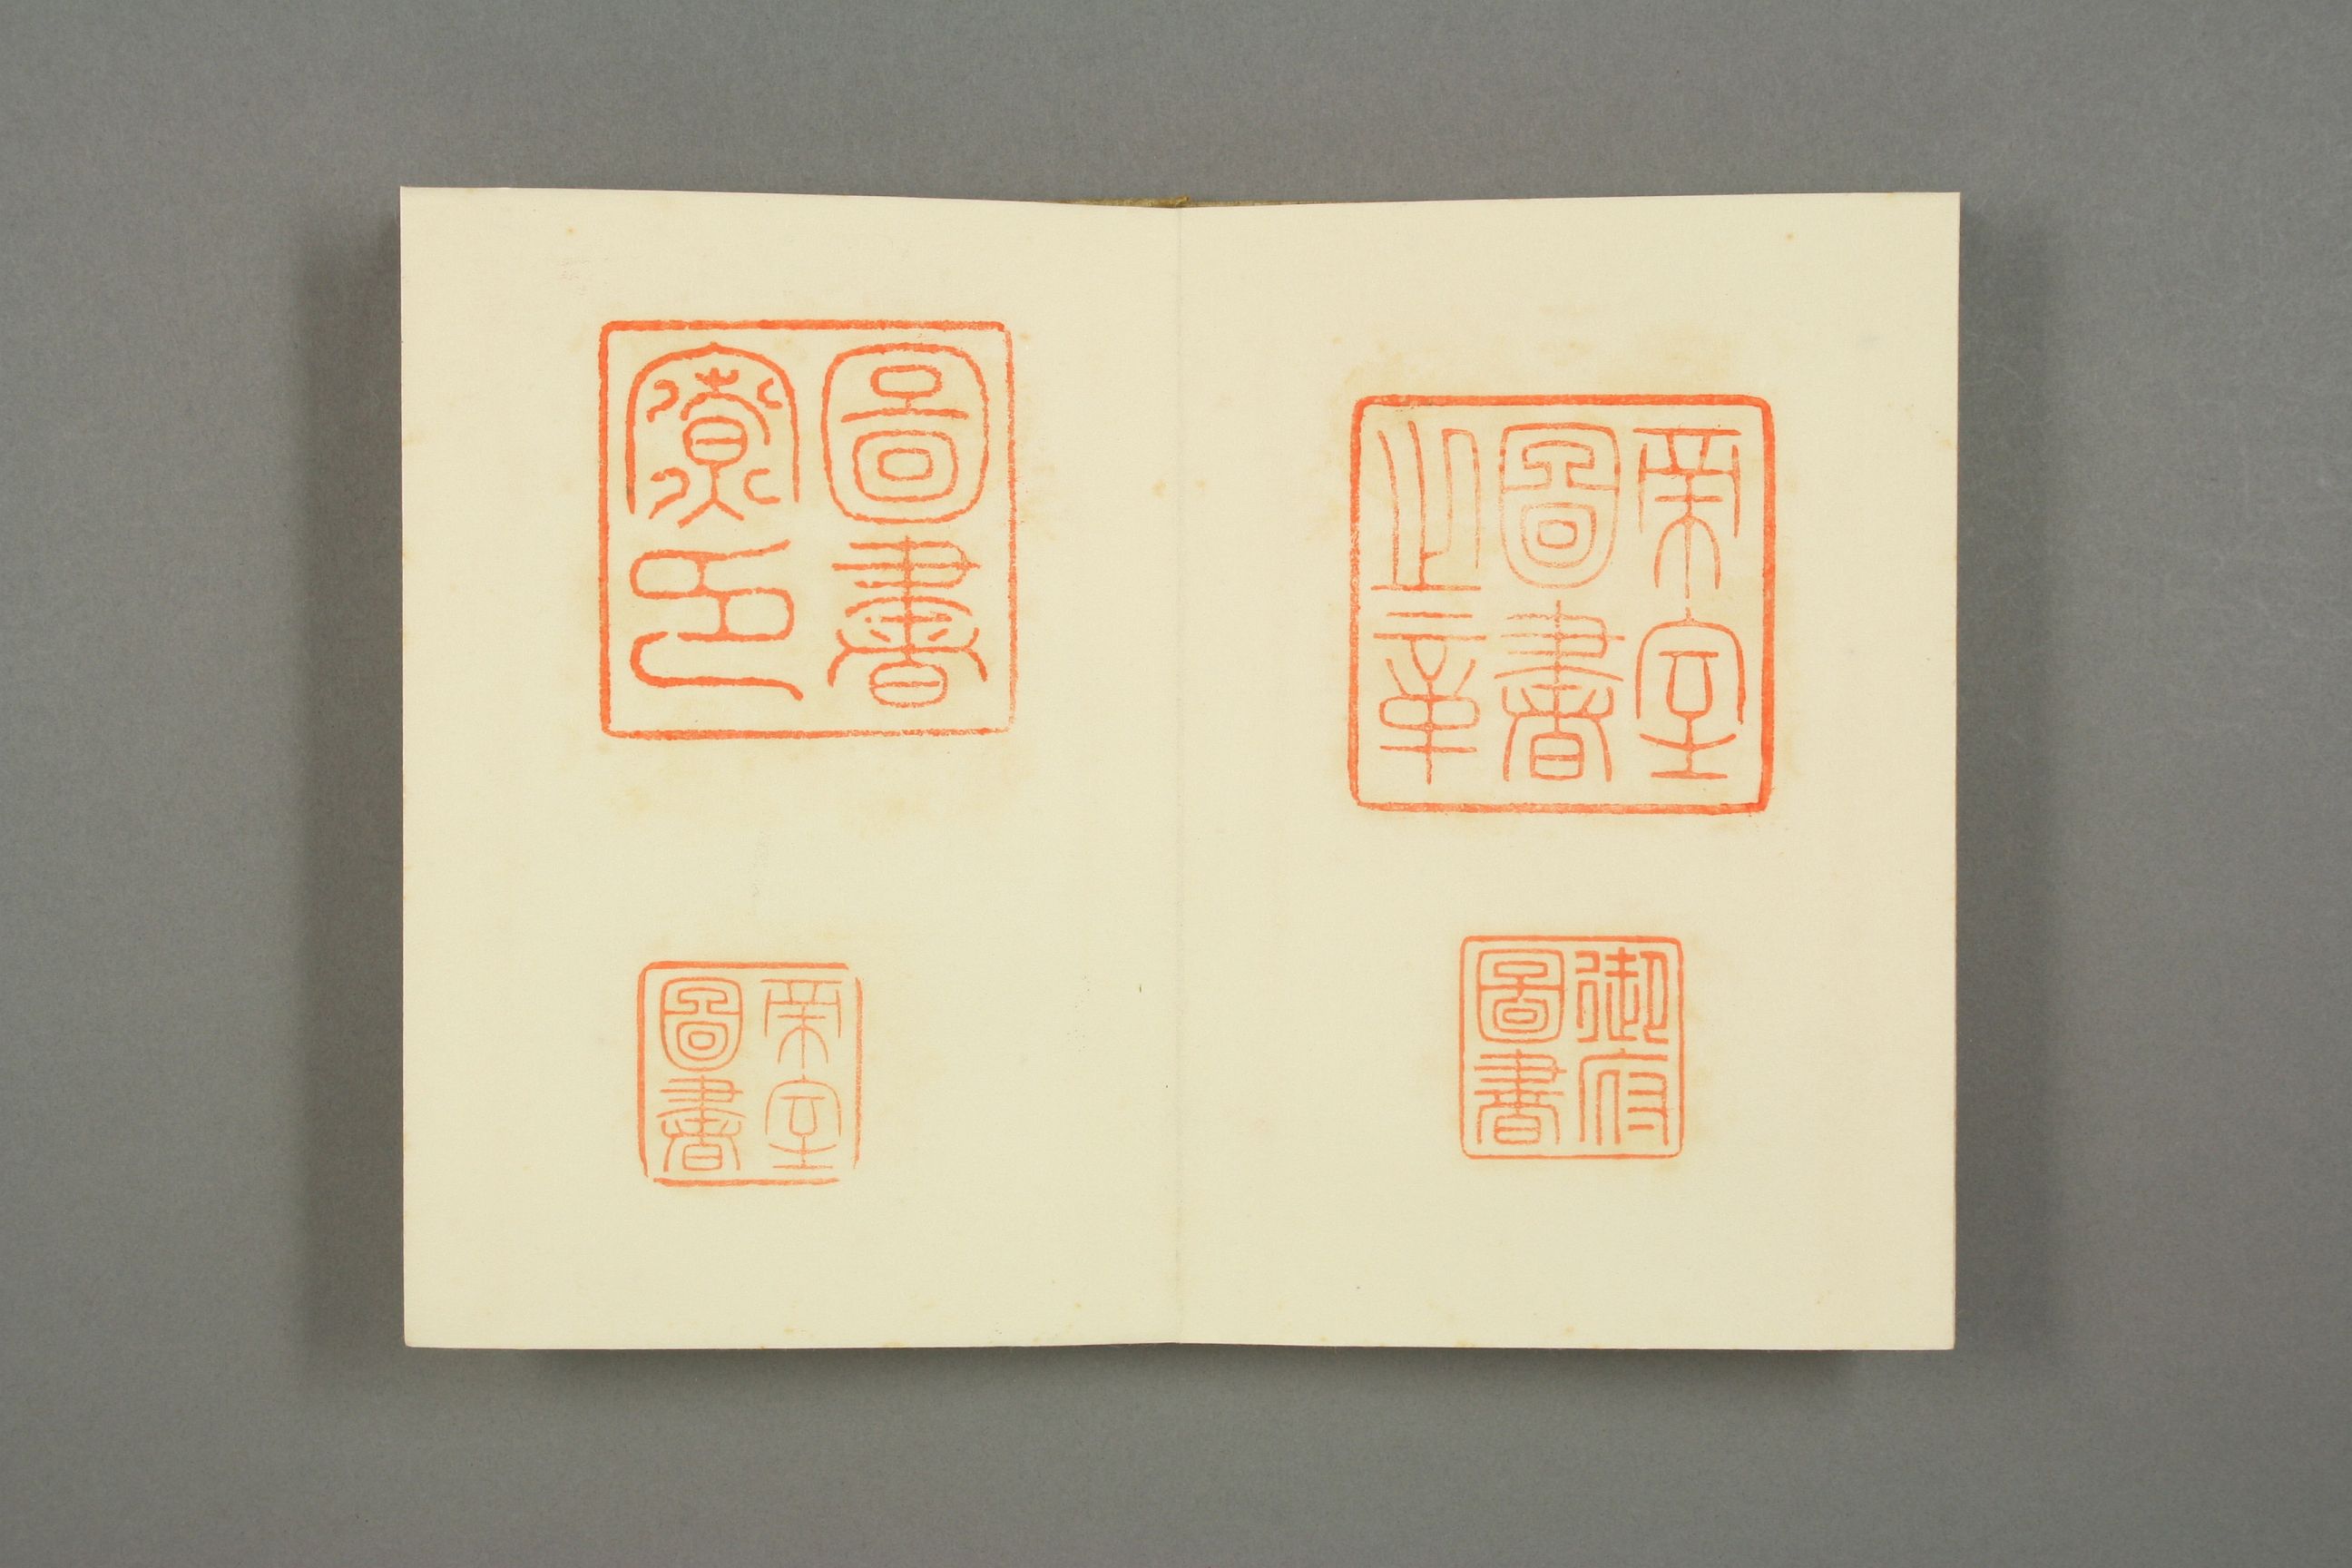 帝室
圖書
之章
御府
圖書
圖書
寮印
帝室
圖書